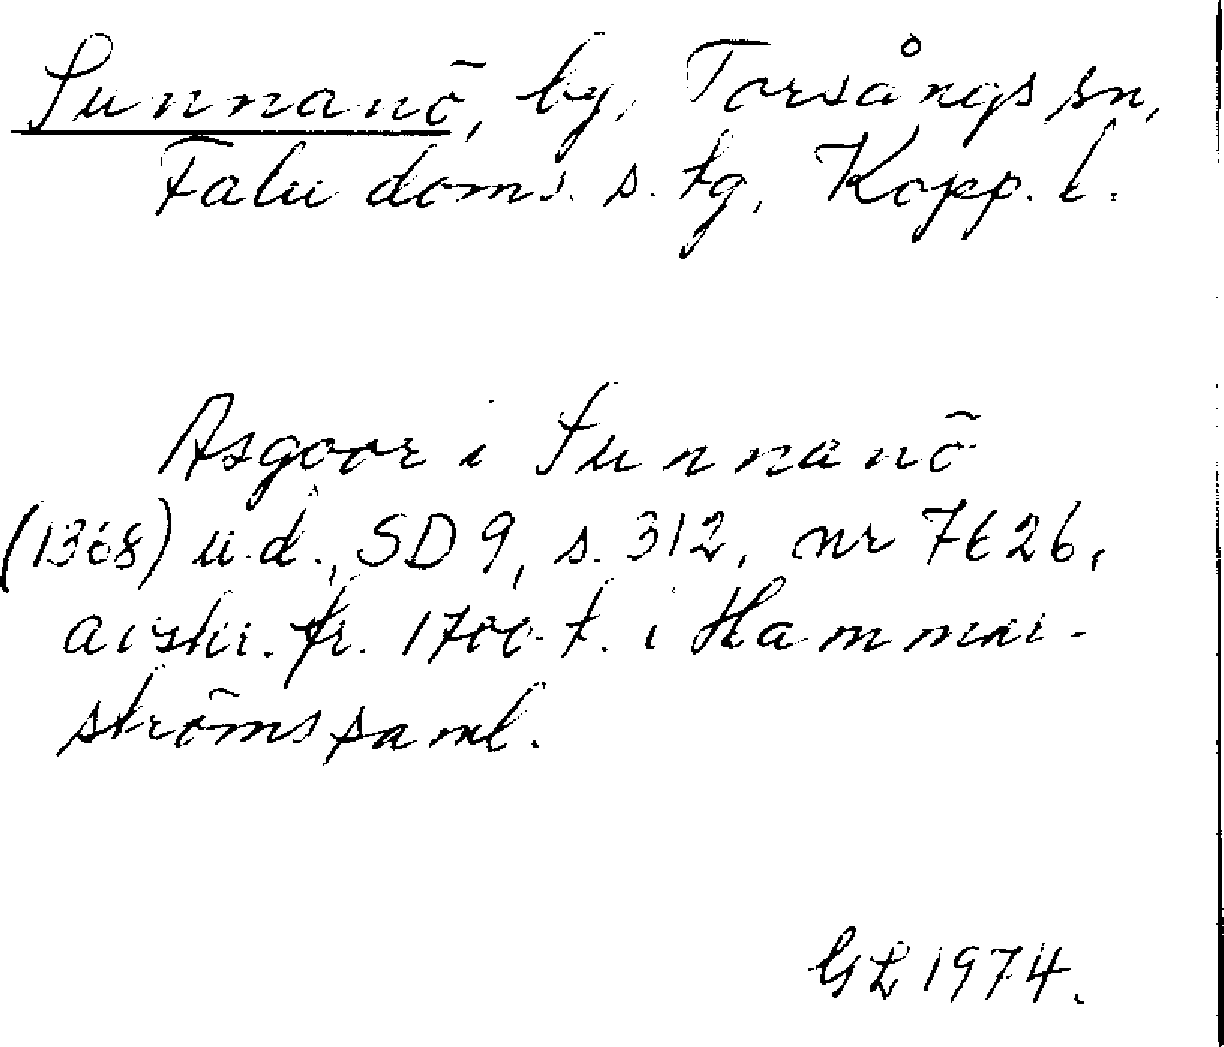 Sunnanö, by, Torsångs sn,
Falu doms. s. tg, Kopp. l.
Asgoor i Sunnanö
(1368) u.d., SD 9, s. 312, nr 7626,
avskr. fr. 1700-t. i Hammar-
ströms saml.
GL 1974.